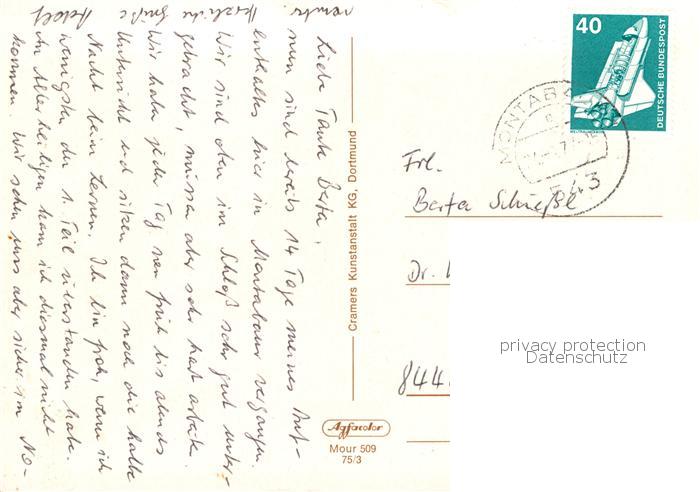 Liebe Tante Berta,
nun sind bereits 14 Tage meines Auf-
enthaltes hier in Montabaur vergangen.
Wir sind oben im Schloß sehr gut unter-
gebracht, müssen aber sehr hart arbeiten.
Wir haben jeden Tag von früh bis abends
Unterricht und sitzen dann noch die halbe
Nacht beim Lernen. Ich bin froh, wenn ich
wenigstens den 1. Teil überstanden habe.
An Allerheiligen kam ich diesmal nicht
kommen. Wir sehen uns aber sicher im No-
vember.
Herzliche Grüße
Adolf
Cramers Kunstanstalt KG, Dortmund
Agfacolor
Mour 509
75/3
40
DEUTSCHE BUNDESPOST
MONTABAUR
543
Frl.
Berta Schießl
Dr.
844
privacy protection
Datenschutz